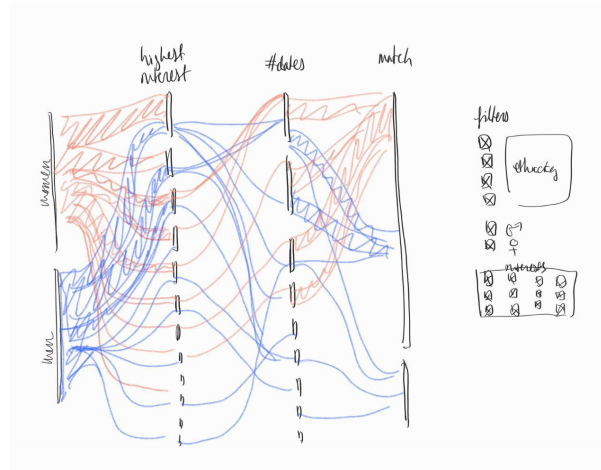 highest
interest
#dates
match
women
men
filters
ethnicity
interests